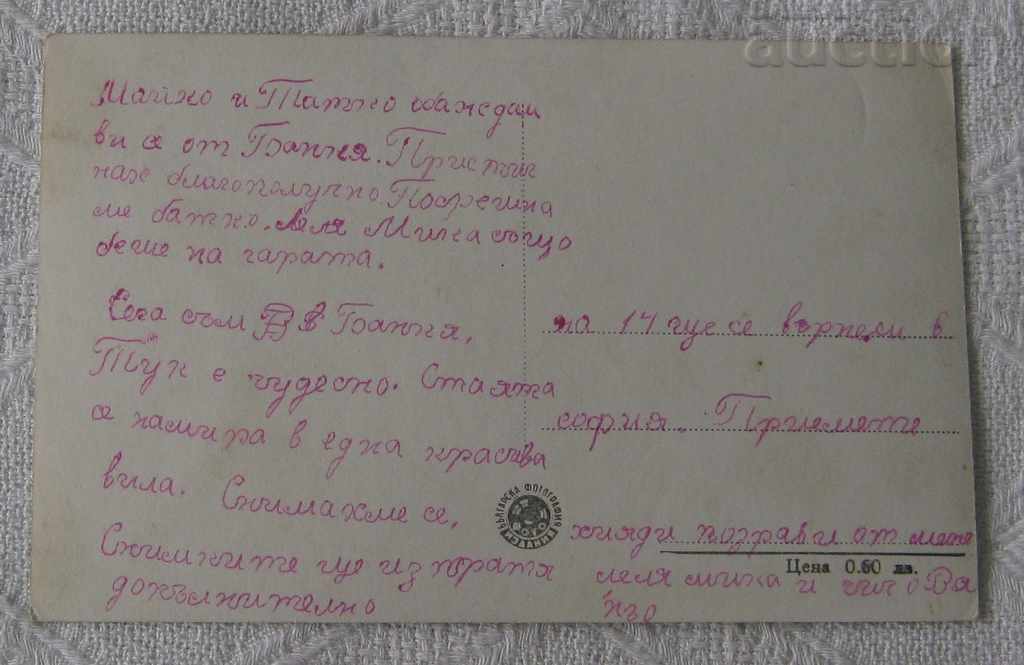 Майко и Татко обаждам
ви се от Банкя. Пристиг
нах благополучно. Посрещна
ме батко. Леля Мика също
беше на гарата.
Сега съм В в Банкя,
Тук е чудесно. Стаята
се намира в една красива
вила. Снимахме се,
Снимките ще изпратя
допълнително
на 14 ще се върнем в
софия. Приемете
хиляди поздрави от мене
леля мика и чичо Ва
БЪЛГАРСКА ФОТОГРАФИЯ
ИЗДАНИЕ
Цена 0.60 лв.
auctio